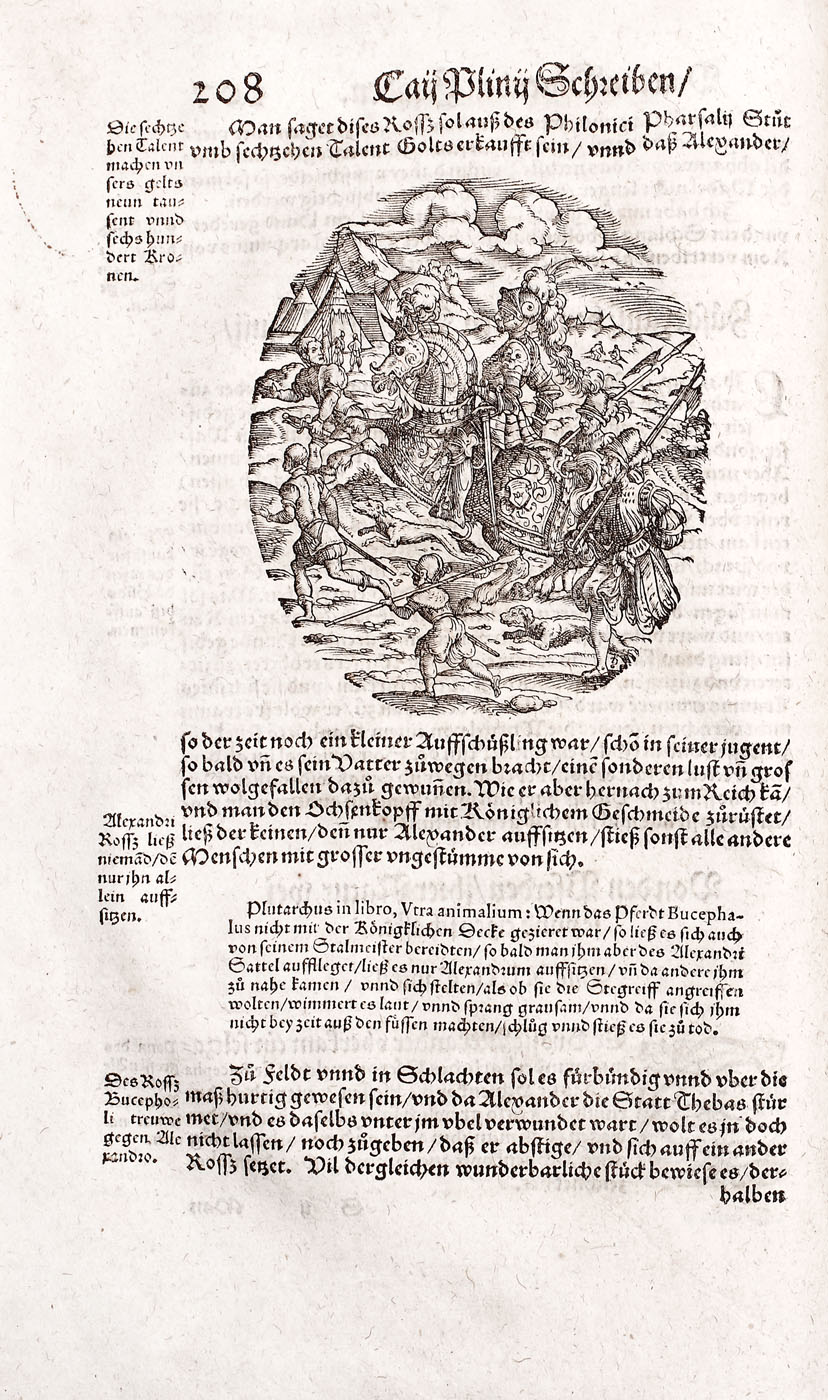 208 Caij Plinij Schreiben/
Man saget dises Rossz sol auß des Philonici Pharsalij Stůt
vmb sechtzehen Talent Golts erkaufft sein/ vnnd daß Alexander/
Die sechtze
hen Talent
machen vn
sers gelts
neun tau⸗
sent vnnd
sechs hun⸗
dert Kro⸗
nen.
so der zeit noch ein kleiner Auffschüßling war/ schō in seiner jugent/
so bald vñ es sein Vatter zůwegen bracht/ einē sonderen lust vñ gros
sen wolgefallen dazů gewuñen. Wie er aber hernach zum Reich kā/
vnd man den Ochsenkopff mit Königlichem Geschmeide zůrüstet/
ließ der keinen/ deñ nur Alexander auffsitzen/ stieß sonst alle andere
Menschen mit grosser vngestümme von sich.
Alexandri
Rossz ließ
niemād/ dē
nur jhn al⸗
lein auff⸗
sitzen.
Plutarchus in libro, Vtra animalium: Wenn das Pferdt Bucepha-
lus nicht mit der Königklichen Decke gezieret war/ so ließ es sich auch
von seinem Stalmeister bereidten/ so bald man jhm aber des Alexandri
Sattel aufflleget/ ließ es nur Alexandrum auffsitzen/ vñ da andere jhm
zů nahe kamen/ vnnd sich stelten/ als ob sie die Stegreiff angreiffen
wolten/ wimmert es laut/ vnnd sprang grausam/ vnnd da sie sich jhm
nicht bey zeit auß den füssen machten/ schlůg vnnd stieß es sie zů tod.
Zů Feldt vnnd in Schlachten sol es fürbündig vnnd vber die
maß hurtig gewesen sein/ vnd da Alexander die Statt Thebas stür
met/ vnd es daselbs vnter jm vbel verwundet wart/ wolt es jn doch
nicht lassen/ noch zůgeben/ daß er abstige/ vnd sich auff ein ander
Rossz setzet. Vil dergleichen wunderbarliche stück bewiese es/ der⸗
halben
Des Rossz
Bucepho⸗
li treuwe
gegen Ale
xandro.